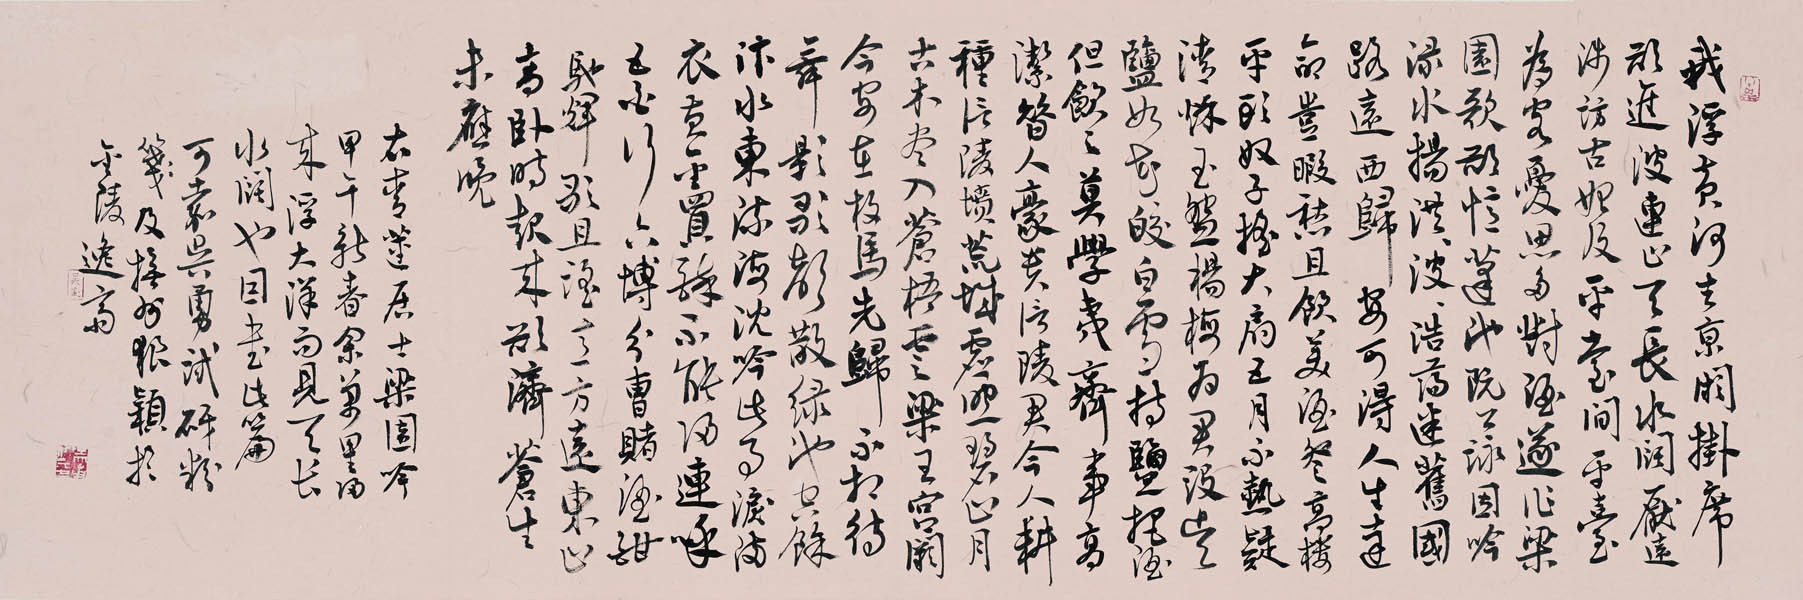 我浮黄河去京闕掛席
欲進波連山天長水闊厭遠
涉訪古始及平臺間平臺
為客憂思多對酒遂作梁
園歌卻憶蓬池阮公詠因吟
渌水揚洪波洪波浩蕩迷舊國
路遠西歸安可得人生達
命豈暇愁且飲美酒登高樓
平頭奴子搖大扇五月不熱疑
清秋玉盤楊梅為君設吳
鹽如花皎白雪持鹽把酒
但飲之莫學夷齊事高
潔昔人豪貴信陵君今人耕
種信陵墳荒城虛照碧山月
古木盡入蒼梧雲梁王宮闕
今安在枚馬先歸不相待
舞影歌聲散緑池空餘
汴水東流海沈吟此事淚滿
衣黄金買醉不能歸連呼
五白行六博分曹賭酒酣
馳輝歌且謠意方遠東山
高卧時起來欲濟蒼生
未應晚
右青蓮居士梁園吟
甲午新春余萬里歸
來浮大洋而見天長
水闊也因書此篇
可嘉吳勇試研粉
箋及揚州狼穎於
金陵逸齋